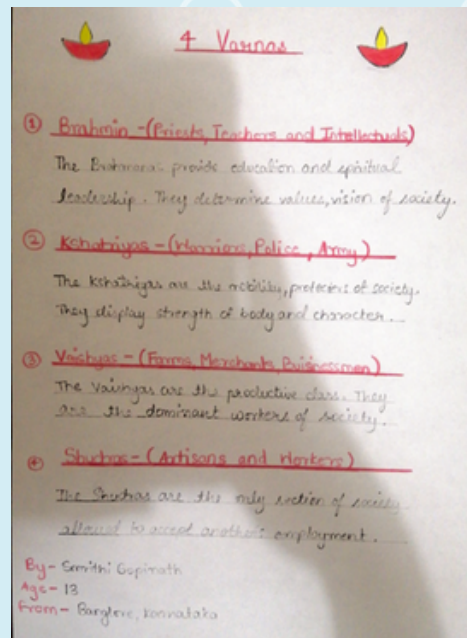 4 Varnas
① Brahmin - (Priests, Teachers and Intellectuals)
The provide education and spiritual
leadership. They determine values, vision of society.
② Kshatriyas - (Warriors, Police, Army)
The Kshatriyas are the nobility, protectors of society.
They display strength of body and character.
③ Vaishyas - (Farms, Merchants, Buisnessmen)
The Vaishyas are the productive class. They
are the dominant workers of society.
④ Shudras - (Artisans and Workers)
The Shudras are the only section of society
allowed to accept another's employment.
By - Smrithi Gopinath
Age - 13
From - Banglore, Karnataka